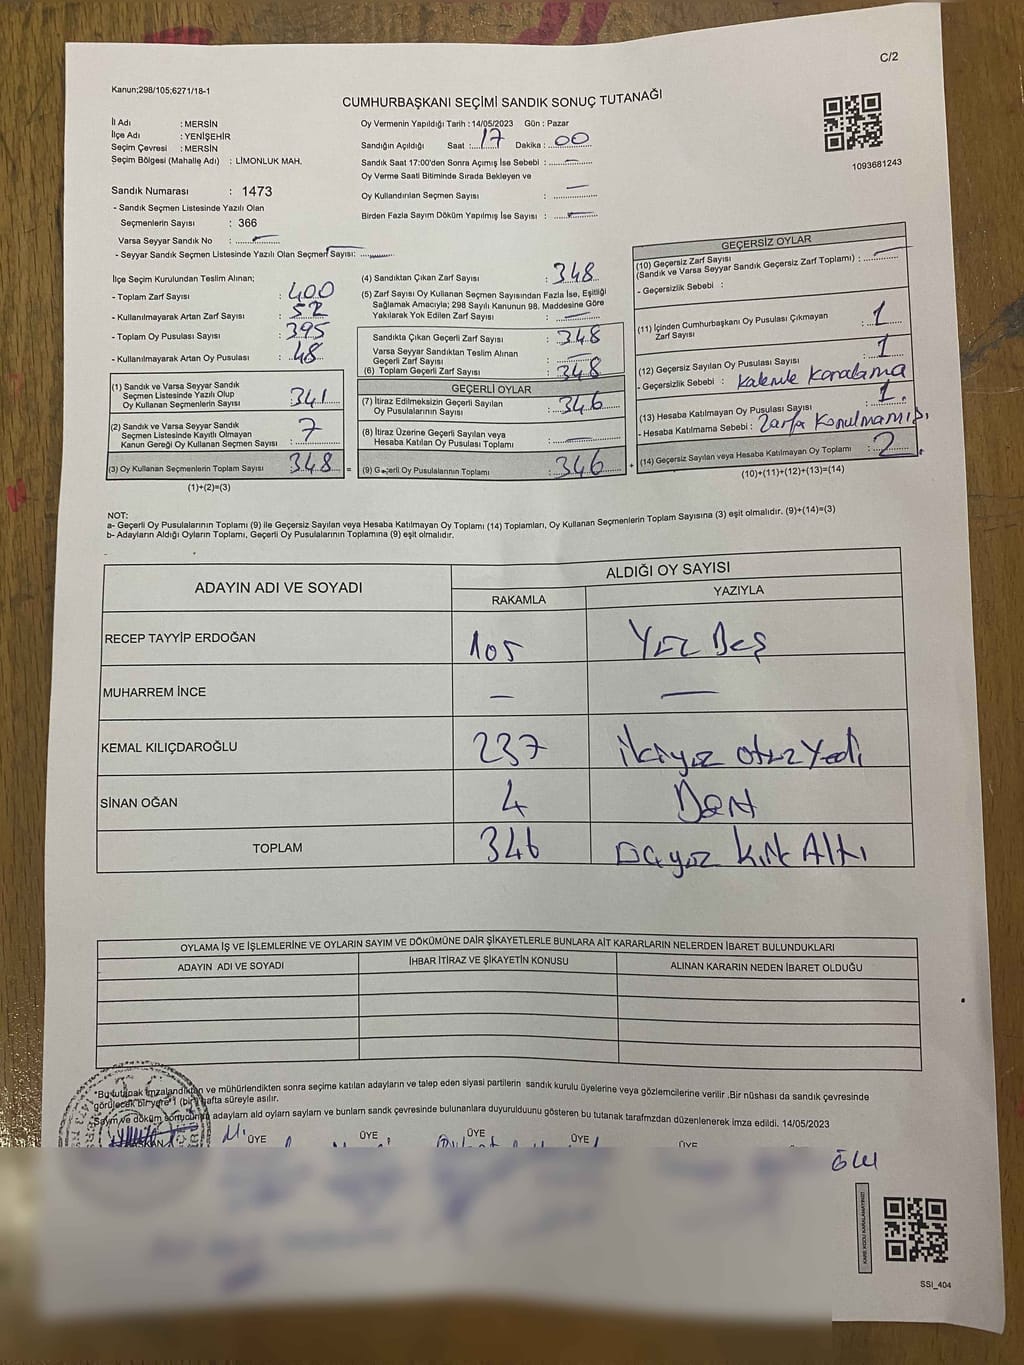 C/2
Kanun;298/105;6271/18-1
CUMHURBAŞKANI SEÇİMİ SANDIK SONUÇ TUTANAĞI
İl Adı : MERSİN
İlçe Adı : YENİŞEHİR
Seçim Çevresi : MERSİN
Seçim Bölgesi (Mahalle Adı) : LİMONLUK MAH.
Sandık Numarası : 1473
- Sandık Seçmen Listesinde Yazılı Olan
Seçmenlerin Sayısı : 366
Varsa Seyyar Sandık No : —
- Seyyar Sandık Seçmen Listesinde Yazılı Olan Seçmen Sayısı: —
Oy Vermenin Yapıldığı Tarih : 14/05/2023 Gün : Pazar
Sandığın Açıldığı Saat : 17 Dakika : 00
Sandık Saat 17:00'den Sonra Açımış İse Sebebi : —
Oy Verme Saati Bitiminde Sırada Bekleyen ve
Oy Kullandırılan Seçmen Sayısı : —
Birden Fazla Sayım Döküm Yapılmış İse Sayısı : —
1093681243
İlçe Seçim Kurulundan Teslim Alınan;
- Toplam Zarf Sayısı : 400
- Kullanılmayarak Artan Zarf Sayısı : 52
- Toplam Oy Pusulası Sayısı : 395
- Kullanılmayarak Artan Oy Pusulası : 48
(1) Sandık ve Varsa Seyyar Sandık
Seçmen Listesinde Yazılı Olup
Oy Kullanan Seçmenlerin Sayısı : 341
(2) Sandık ve Varsa Seyyar Sandık
Seçmen Listesinde Kayıtlı Olmayan
Kanun Gereği Oy Kullanan Seçmen Sayısı : 7
(3) Oy Kullanan Seçmenlerin Toplam Sayısı : 348 =
(1)+(2)=(3)
(4) Sandıktan Çıkan Zarf Sayısı : 348
(5) Zarf Sayısı Oy Kullanan Seçmen Sayısından Fazla İse, Eşitliği
Sağlamak Amacıyla; 298 Sayılı Kanunun 98. Maddesine Göre
Yakılarak Yok Edilen Zarf Sayısı : —
Sandıkta Çıkan Geçerli Zarf Sayısı : 348
Varsa Seyyar Sandıktan Teslim Alınan
Geçerli Zarf Sayısı : —
(6) Toplam Geçerli Zarf Sayısı : 348
GEÇERLİ OYLAR
(7) İtiraz Edilmeksizin Geçerli Sayılan
Oy Pusulalarının Sayısı : 346
(8) İtiraz Üzerine Geçerli Sayılan veya
Hesaba Katılan Oy Pusulası Toplamı : —
(9) Geçerli Oy Pusulalarının Toplamı : 346 +
GEÇERSİZ OYLAR
(10) Geçersiz Zarf Sayısı
(Sandık ve Varsa Seyyar Sandık Geçersiz Zarf Toplamı) : —
- Geçersizlik Sebebi :
(11) İçinden Cumhurbaşkanı Oy Pusulası Çıkmayan
Zarf Sayısı : 1
(12) Geçersiz Sayılan Oy Pusulası Sayısı : 1
- Geçersizlik Sebebi : Kalemle Karalama
(13) Hesaba Katılmayan Oy Pusulası Sayısı : 1.
- Hesaba Katılmama Sebebi : Zarfa Konulmamış.
(14) Geçersiz Sayılan veya Hesaba Katılmayan Oy Toplamı : 2.
(10)+(11)+(12)+(13)=(14)
NOT:
a- Geçerli Oy Pusulalarının Toplamı (9) ile Geçersiz Sayılan veya Hesaba Katılmayan Oy Toplamı (14) Toplamları, Oy Kullanan Seçmenlerin Toplam Sayısına (3) eşit olmalıdır. (9)+(14)=(3)
b- Adayların Aldığı Oyların Toplamı, Geçerli Oy Pusulalarının Toplamına (9) eşit olmalıdır.
ADAYIN ADI VE SOYADI ALDIĞI OY SAYISI
RAKAMLA YAZIYLA
RECEP TAYYİP ERDOĞAN 105 Yüz Beş
MUHARREM İNCE — —
KEMAL KILIÇDAROĞLU 237 ikiyüz otuz Yedi
SİNAN OĞAN 4 Dört
TOPLAM 346 Üçyüz Kırk Altı
OYLAMA İŞ VE İŞLEMLERİNE VE OYLARIN SAYIM VE DÖKÜMÜNE DAİR ŞİKAYETLERLE BUNLARA AİT KARARLARIN NELERDEN İBARET BULUNDUKLARI
ADAYIN ADI VE SOYADI İHBAR İTİRAZ VE ŞİKAYETİN KONUSU ALINAN KARARIN NEDEN İBARET OLDUĞU
"Bu tutanak imzalandıktan ve mühürlendikten sonra seçime katılan adayların ve talep eden siyasi partilerin sandık kurulu üyelerine veya gözlemcilerine verilir .Bir nüshası da sandık çevresinde
görülecek bir yere 1 (bir) hafta süreyle asılır.
Sayım ve döküm sonucunda adaylam ald oylarn saylarn ve bunlarn sandk çevresinde bulunanlara duyurulduunu gösteren bu tutanak tarafmzdan düzenlenerek imza edildi. 14/05/2023
BAŞKAN ÜYE ÜYE ÜYE ÜYE ÜYE
KARE KODU KARALAMAYINIZ!
SSI_404